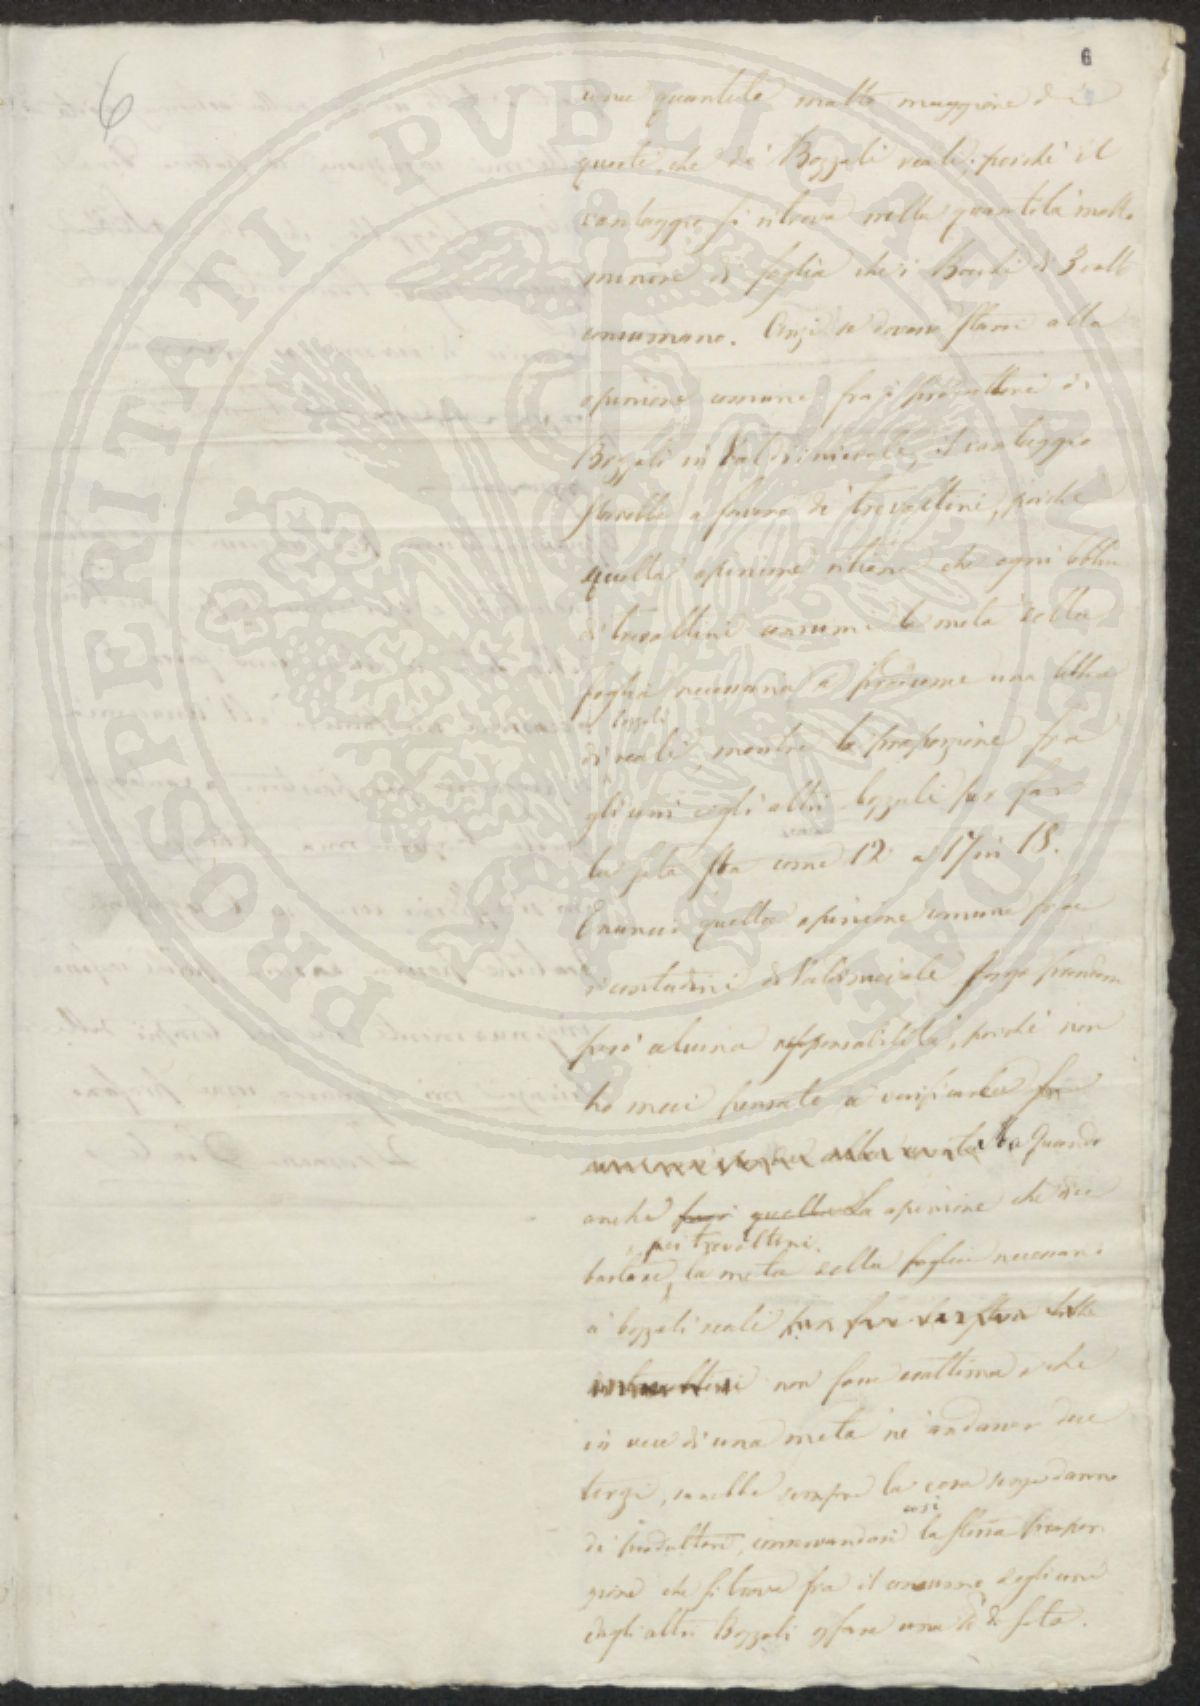 6
6
una quantità molto maggiore di
questi, che di Bozzoli reali; poichè il
vantaggio si ritrova nella quantità molto
minore di foglia che i Bachi di 3 volte
consumano. Anzi se dovessi starsi alla
opinione comune fra i produttori di
Bozzoli in Valdinievole, il vantaggio
starebbe a favore di trevoltini, poichè
quella opinione ritiene che ogni libbra
di trevoltini consumi la metà della
foglia necessaria a produrne una libbra
di bozzoli
di reali, mentre la proporzione fra
gli uni e gli altri bozzoli per far
la seta sta come 12 a 17 in 18.
Enuncio quella opinione comune fra
i contadini di Valdinievole senza prendere
però alcuna responsabilità, poichè non
ho mai pensato a verificarla
Ma Quando
anche quella La opinione che dice
pei trevoltini
bastare, la metà della foglia necessaria
a bozzoli reali
non fosse esattissima e che
in vece di una metà ne andasser due
terzi, sarebbe sempre la cosa senza danno
così
di produttori, conservandosi la stessa propor-
zione che si trova fra il consumo degli uni
e degli altri Bozzoli per fare una di seta.
PROSPERITATI PVBLICAE AVGENDAE